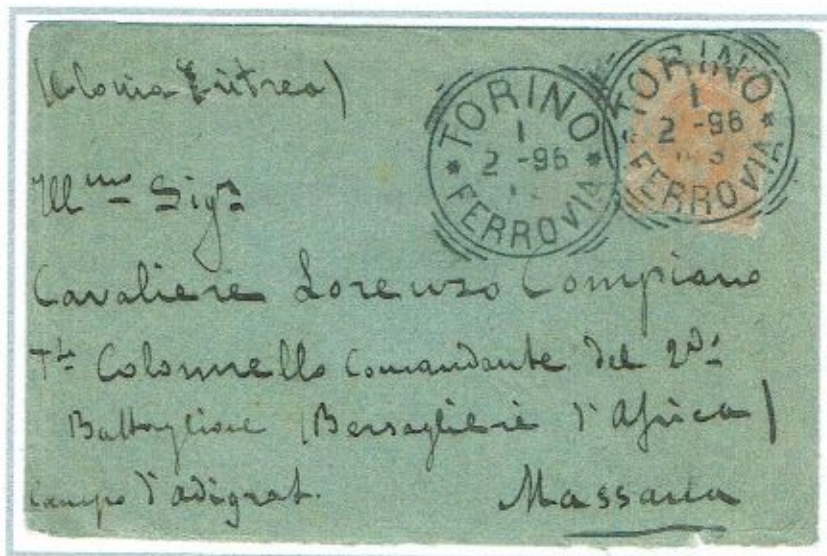 (Colonia Eritrea)
TORINO
1
2 -96
FERROVIA
TORINO
1
2 -96
FERROVIA
Ill^mo Sig^r
Cavaliere Lorenzo Compiano
T^te Colonnello Comandante del 2^do
Battaglione (Bersaglieri d'Africa)
Campo d'adigrat.
Massaua